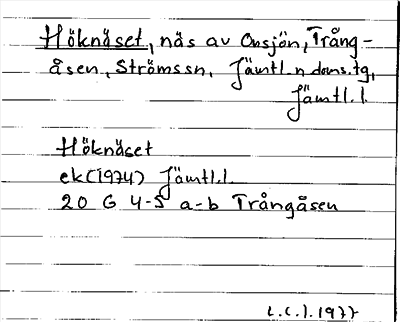 Höknäset, näs av Onsjön, Trång-
åsen, Strömssn, Jämtl. n doms.tg,
Jämtl. l.
Höknäset
ek (1974) Jämtl. l.
20 G 4-5 a-b Trångåsen
1977